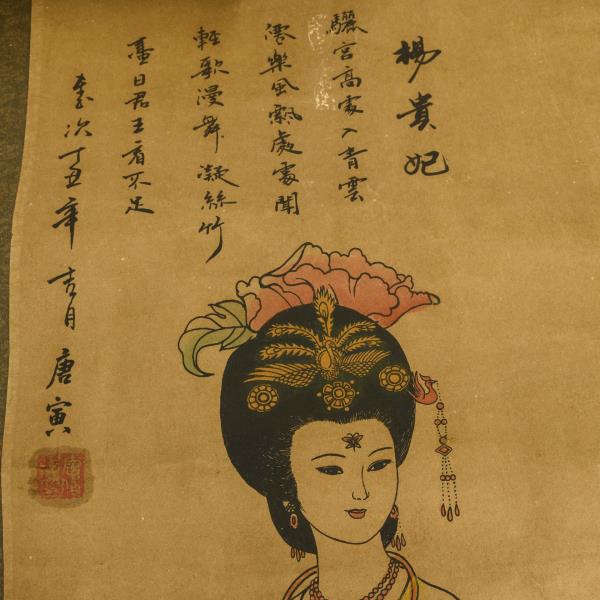 楊貴妃
驪宮高處入青雲
僊樂風飄處處聞
輕歌漫舞凝絲竹
盡日君王看不足
歲次丁丑年吉月唐寅